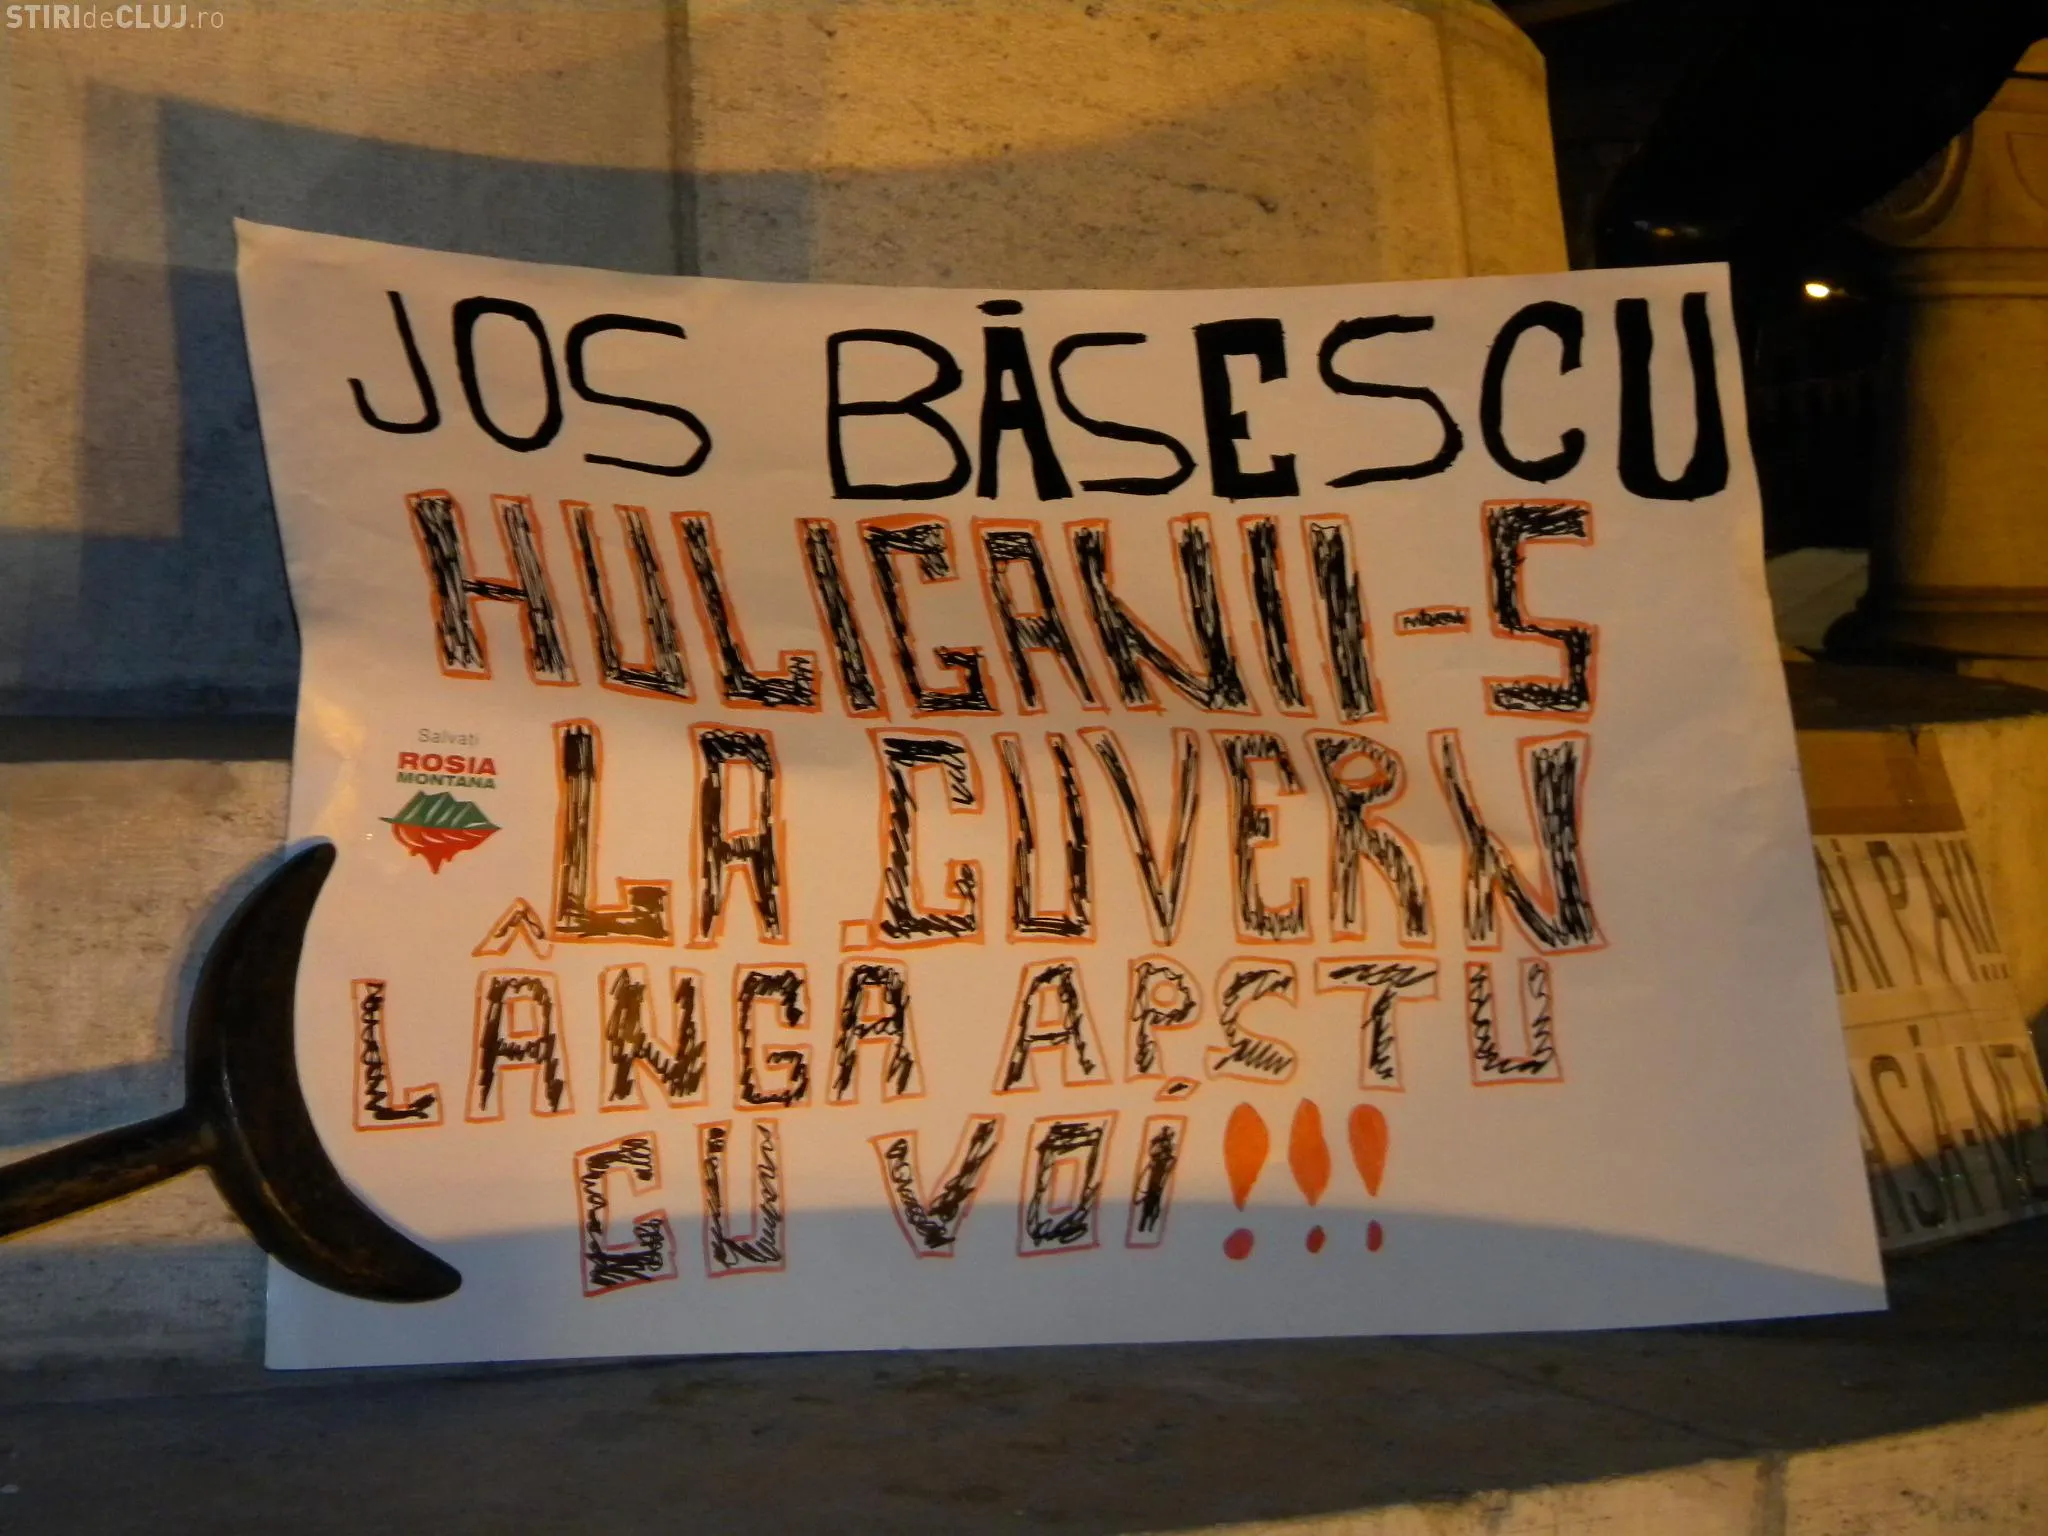 STIRIdeCLUJ.ro
JOS BĂSESCU
HULIGANII-S
LA GUVERN
LÂNGĂ APSTU
CU VOI!!!
Salvati
ROSIA
MONTANA